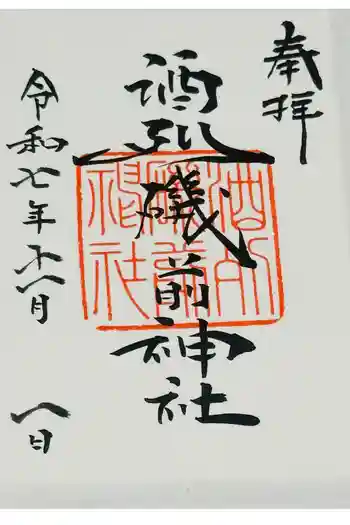 奉拝
酒列磯前神社
酒列
磯前
神社
令和七年十一月 八日